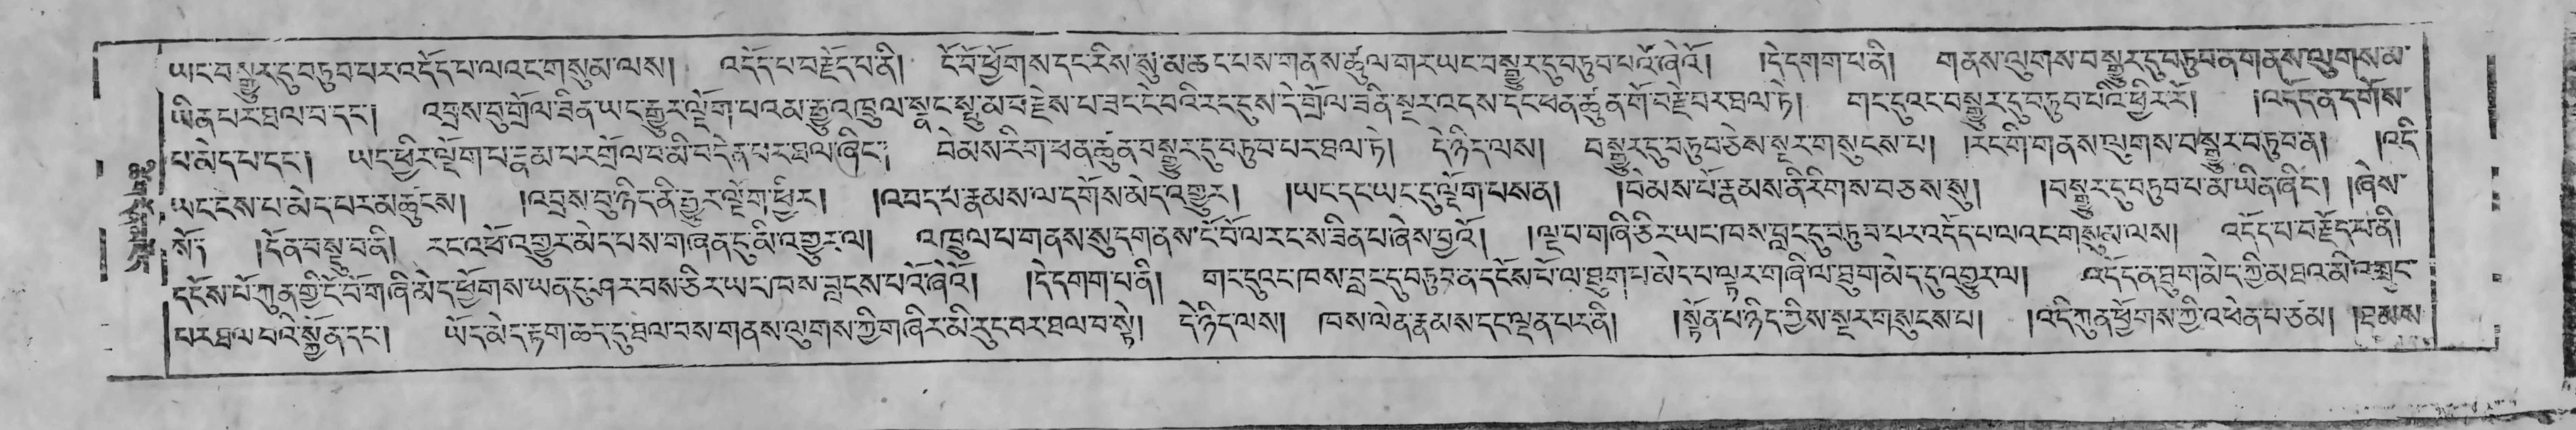 ཡང་བསྒྱུར་དུ་བཏུབ་པར་འདོད་པ་ལའང་གསུམ་ལས། འདོད་པ་བརྗོད་པ་ནི། ངོ་བོ་ཕྱོགས་དང་རིས་སུ་མ་ཆད་པས་གནས་ཚུལ་གར་ཡང་བསྒྱུར་དུ་བཏུབ་པའོ་ཞེའོ། །དེ་དགག་པ་ནི། གནས་ལུགས་བསྒྱུར་དུ་བཏུབ་ན་གནས་ལུགས་མ་
ཡིན་པར་ཐལ་བ་དང་། འབྲས་བུ་གྲོལ་ཟིན་ཡང་རྒྱུར་ལྡོག་པའམ་རྒྱུ་འཁྲུལ་སྣང་སྤྲུ་མ་ཕ་རྗེས་པ་ཟང་ངེ་བའི་རིང་དུས་དེ་གྲོལ་ཟིན་སྔར་འདས་དང་ཕན་ཚུན་གོ་བརྗེ་བར་ཐལ་ཏེ། གང་དུའང་བསྒྱུར་དུ་བཏུབ་པའི་ཕྱིར་རོ། །འདོད་ན་དགོས་
པ་མེད་པ་དང་། ཡང་ཕྱིར་ལྡོག་པ་རྣམ་པར་གྲོལ་བ་མི་བདེན་པར་ཐལ་ཞིང་། བེམས་རིག་ཕན་ཚུན་བསྒྱུར་དུ་བཏུབ་པར་ཐལ་ཏེ། དེ་ཉིད་ལས། བསྒྱུར་དུ་བཏུབ་ཅེས་སྔར་གསུངས་པ། །རང་གི་གནས་ལུགས་བསྒྱུར་བཏུབ་ན། །འདི་
ཡང་ངེས་པ་མེད་པར་མཚུངས། །འབྲས་བུ་ཉིད་ནི་རྒྱུར་ལྡོག་ཕྱིར། །འབད་པ་རྣམས་ལ་དགོས་མེད་འགྱུར། །ཡང་དང་ཡང་དུ་ལྡོག་པས་ན། །བེམས་པོ་རྣམས་ནི་རིགས་བཅས་སུ། །བསྒྱུར་དུ་བཏུབ་པ་མ་ཡིན་ཞིང་། །ཞེས་
སོ། །དོན་བསྡུ་བ་ནི། རང་འཕོ་འགྱུར་མེད་པས་གཞན་དུ་མི་འགྱུར་ལ། འཁྲུལ་པ་གནས་སུ་དགནས་ངོ་བོ་ལ་རང་ས་ཟིན་པ་ཞེས་བྱའོ། །ལྔ་པ་གཞི་ཅིར་ཡང་ཁས་བླང་དུ་བཏུབ་པར་འདོད་པ་ལའང་གསུམ་ལས། འདོད་པ་བརྗོད་པ་ནི།
དངོས་པོ་ཀུན་གྱི་ངོ་བོ་གཞི་མེད་ཕྱོགས་ཡན་དུ་ཤར་བས་ཅིར་ཡང་ཁས་བླངས་པའོ་ཞེའོ། །དེ་དགག་པ་ནི། གང་དུའང་ཁས་བླང་དུ་བཏུབ་ན་དངོས་པོ་ལ་ཐུག་པ་མེད་པ་ལྟར་གཞི་ལ་ཐུག་མེད་དུ་འགྱུར་ལ། འདོད་ན་ཐུག་མེད་ཀྱི་མཐའ་མི་འགྲུང་
པར་ཐལ་བའི་སྐྱོན་དང་། ཡོད་མེད་རྟག་ཆད་དུ་ཐལ་བས་གནས་ལུགས་ཀྱི་གཞིར་མི་རུང་བར་ཐལ་བ་སྟེ། དེ་ཉིད་ལས། ཁས་ལེན་རྣམས་དང་ལྡན་པར་ནི། །སྟོན་པ་ཉིད་ཀྱིས་སྔར་གསུངས་པ། །འདི་ཀུན་ཕྱོགས་ཀྱི་འཕེན་པ་ཙམ། །ཐམས་